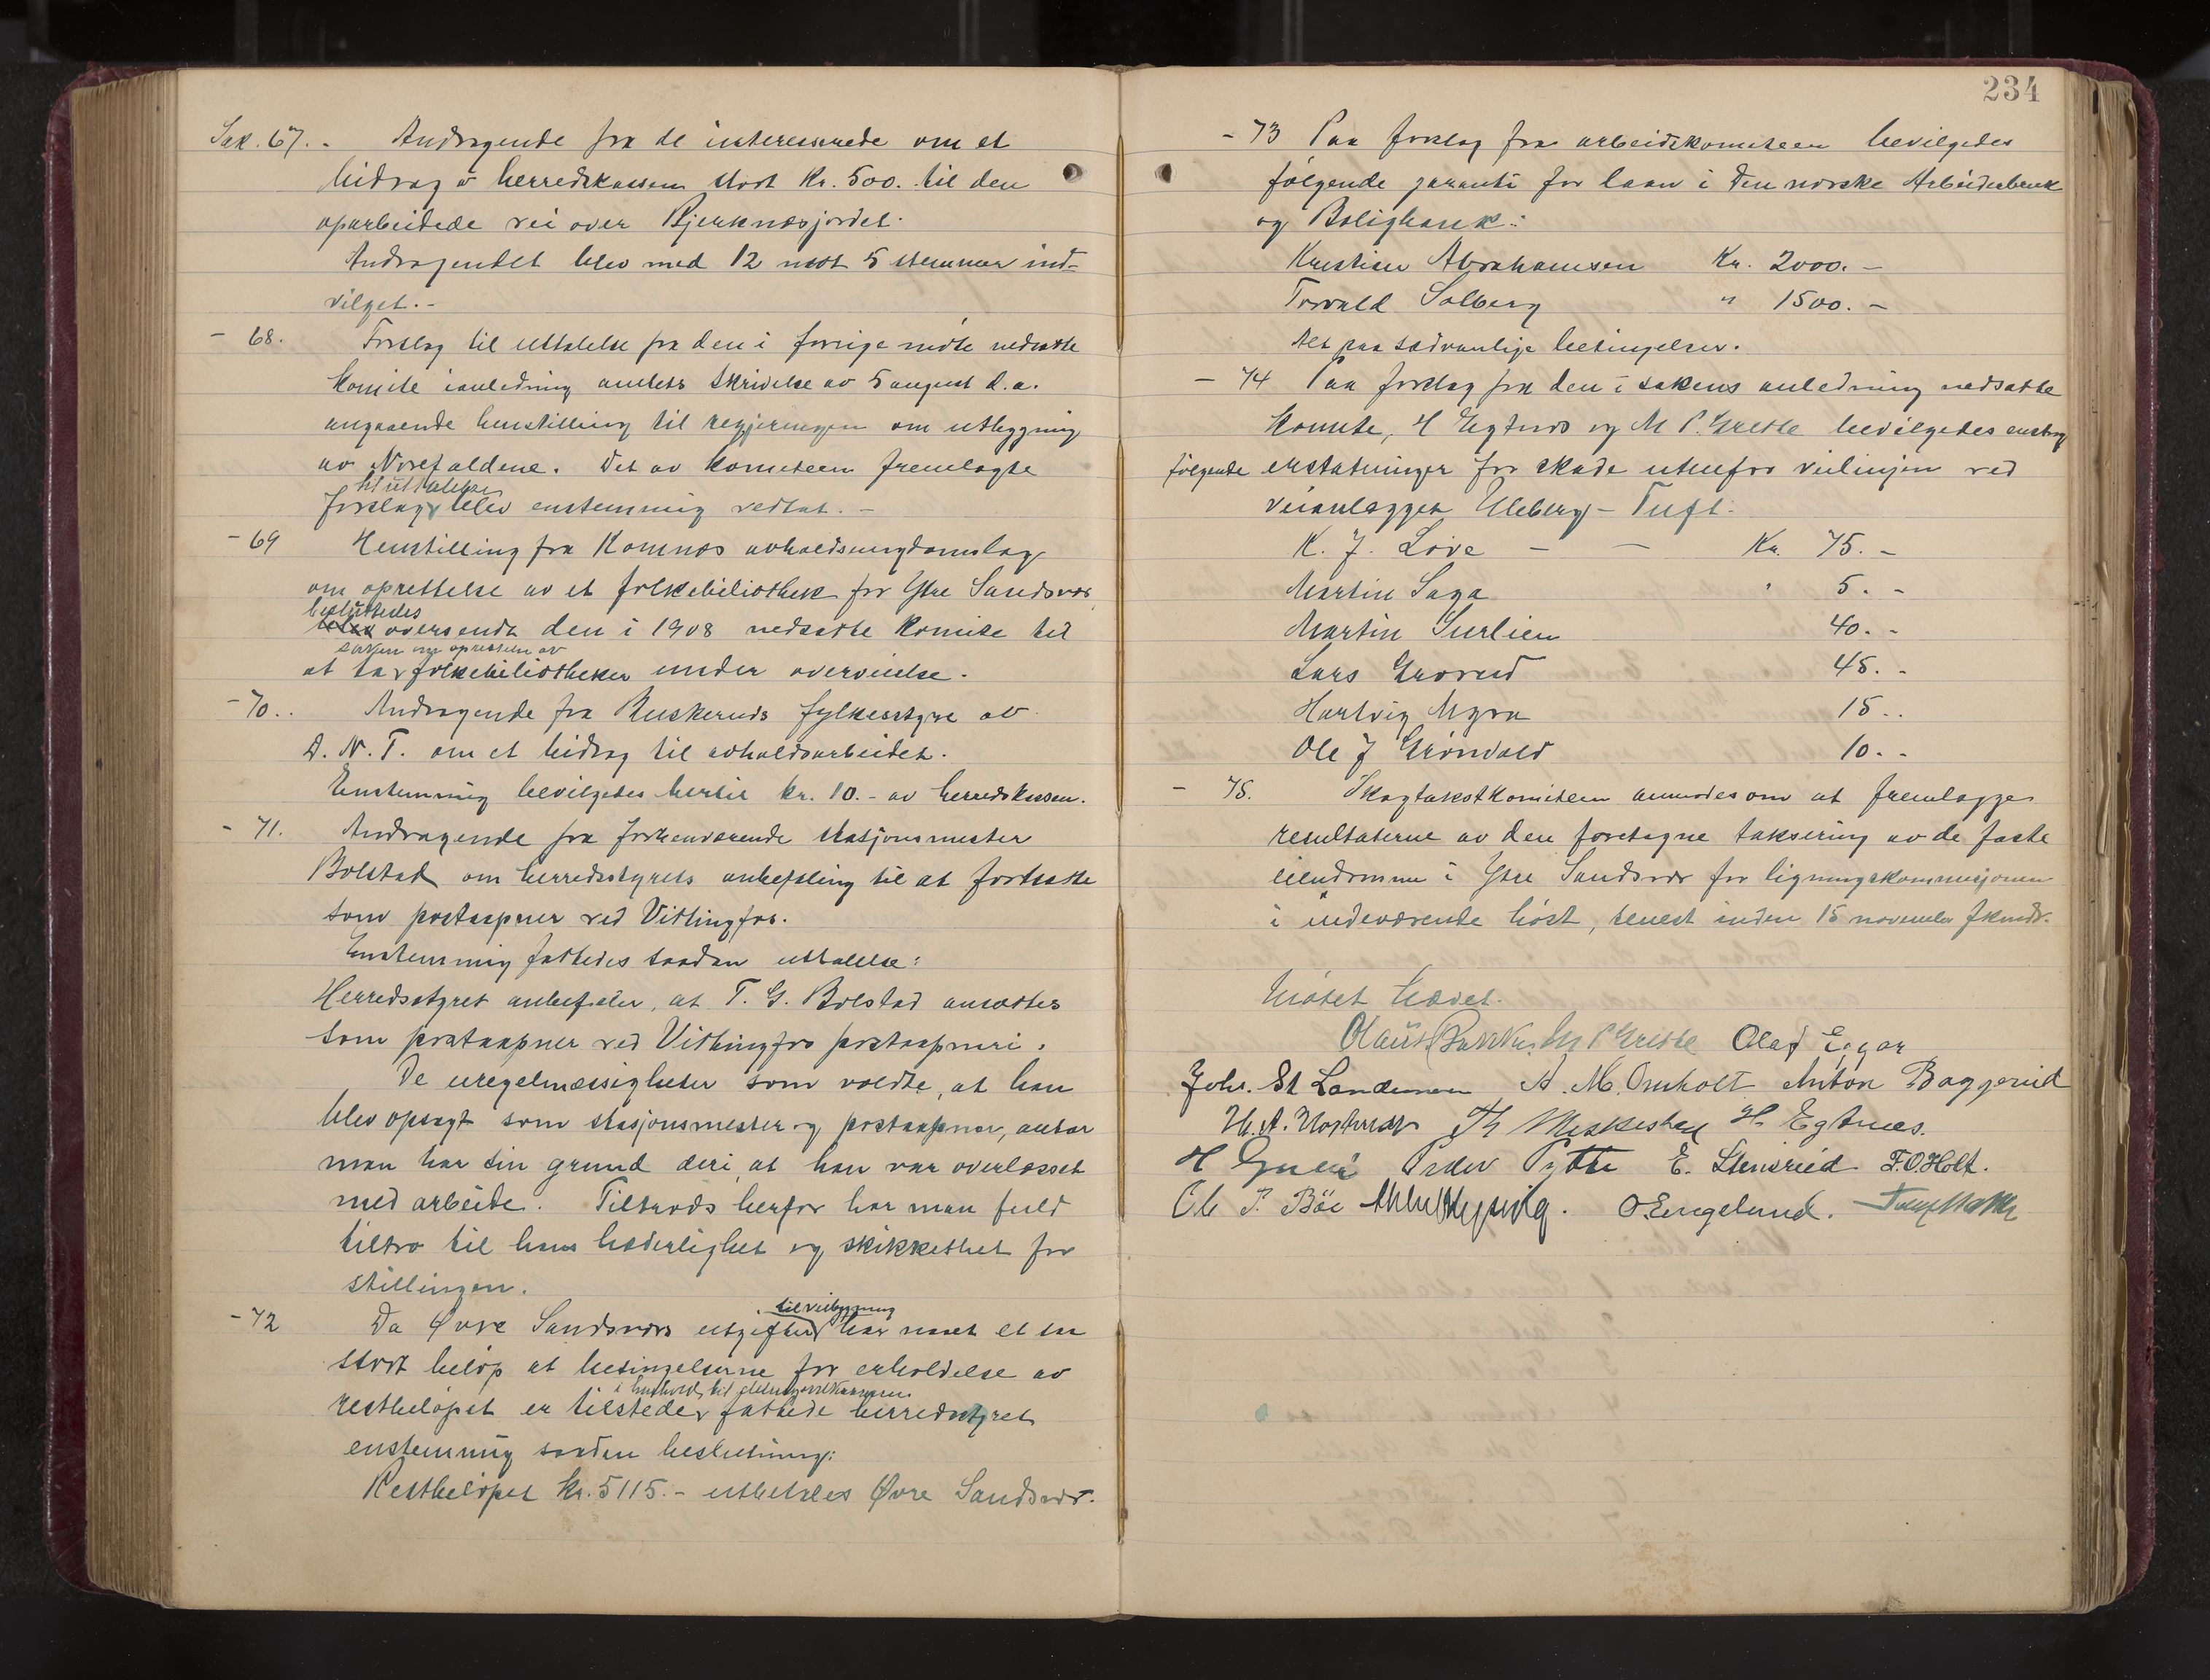 Sak. 67. - Andragende fra de interesserede om et
bidrag av herredskassen stort Kr. 500. til den
oparbeidede vei over Bjerknesjordet.
Andragendet blev med 12 mot 5 stemmer ind-
vilget. -
- 68. Forslag til uttalelse fra den i forrige møte nedsatte
komite i anledning amtets skrivelse av 5 august d.a.
angaaende henstilling til regjeringen om utbygging
av Norefaldene. Det av komiteen fremlagte
til uttalelse
forslag blev enstemmig vedtat. -
- 69 Henstilling fra Komnes avholdsungdomslag
om oprettelse av et folkebibliothek for Ytre Sandsvær
besluttedes
blev oversendt den i 1908 nedsatte komite til
saken om oprettelse av
at ta folkebibliotheker under overveielse.
- 70. . Andragende fra Buskeruds fylkesstyre av
D. N. T. om et bidrag til avholdsarbeidet.
Enstemmig bevilgedes hertil kr. 10. - av herredskassen.
- 71. Andragende fra forhenværende stasjonsmester
Bolstad om herredsstyrets anbefaling til at fortsætte
som postaapner ved Vittingfos.
Enstemmig fattedes saadan uttalelse:
Herredsstyret anbefaler, at T. G. Bolstad ansættes
som postaapner ved Vittingfos postaapneri.
De uregelmæssigheter som voldte, at han
blev opsagt som stasjonsmester og postaapner, antar
man har sin grund deri, at han var overlæsset
med arbeide. Tiltrods herfor har man fuld
tiltro til hans hæderlighet og skikkethet for
stillingen.
- 72 Da Øvre Sandsværs utgifter til veibygging har naaet et saa
stort beløp at betingelserne for erholdelse av
i henhold til delingsoverenskomsten
restbeløpet er tilstede, fattede herredsstyret
enstemmig saadan beslutning:
Restbeløpet kr. 5115. - utbetales Øvre Sandsvær.
234
- 73 Paa forslag fra arbeidskomiteen bevilgedes
følgende garanti for laan i Den norske Arbeiderbruk
og Boligbank:
Kristian Abrahamsen Kr. 2000. -
Torvald Solberg " 1500. -
Alt paa sædvanlige betingelser.
- 74 Paa forslag fra den i sakens anledning nedsatte
komite, H Egtnes og M P. Grette bevilgedes enstemmig
følgende erstatninger for skade utenfor veilinjen ved
veianlægget Uleberg - Tuft:
K. J. Love - - Kr. 75. -
Martin Saga " 5. -
Martin Surlien 40. -
Lars Grorud 45. -
Hartvig Myra 15. .
Ole J Grønvold 10. -
- 75. Skogtakstkomiteen anmodes om at fremlægge
resultaterne av den foretagne taksering av de faste
eiendomme i Ytre Sandsvær for ligningskommisjonen
i indeværende høst, senest inden 15 november førstk.
Møtet hævet.
Olaus Bakke M P Grette Olaf Eggar
Joh. St Landemoen A. M. Omholt Anton Baggerud
H. Egtnes.
Peder Pytte E. Stensrud F.O. Holt.
Ole P. Böe O. Engelund.